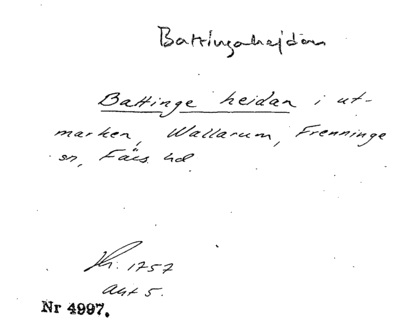 Battingahejdan
Battinge heidan i ut-
marken, Wallarum, Frenninge
sn, Färs hd
Kh. 1757
akt 5.
Nr 4997.